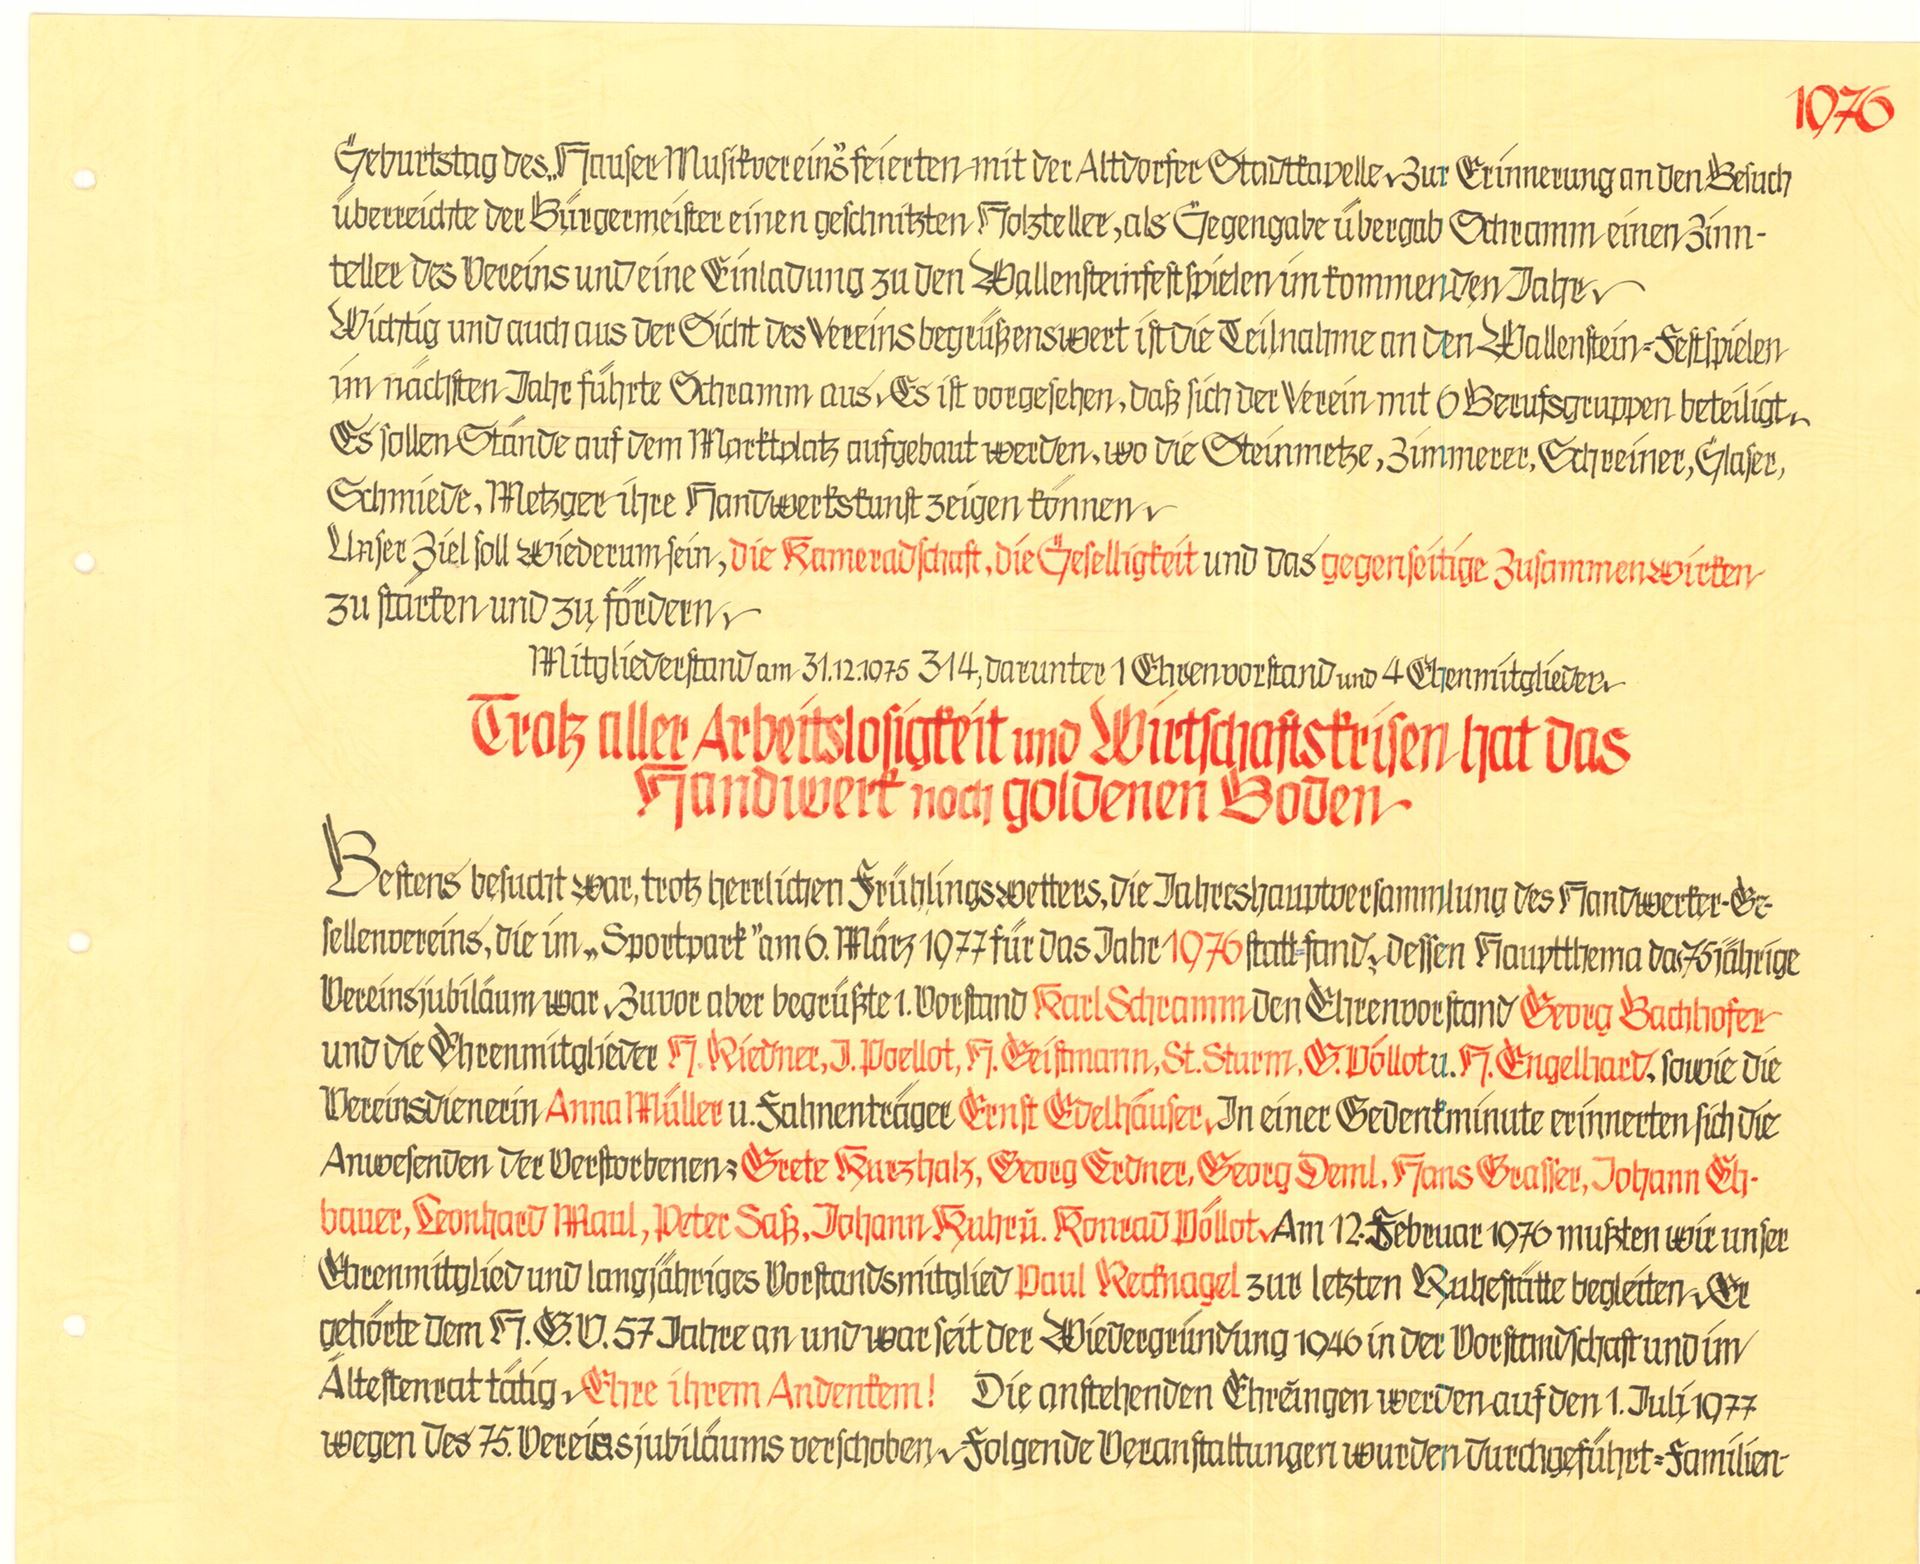 1976
Geburtstag des „Hauser Musikvereins" feierten mit der Altdorfer Stadtkapelle. Zur Erinnerung an den Besuch
überreichte der Bürgermeister einen geschnitzten Holzteller, als Gegengabe übergab Schramm einen Zinn-
teller des Vereins und eine Einladung zu den Wallensteinfestspielen im kommenden Jahr.
Wichtig und auch aus der Sicht des Vereins begrüßenswert ist die Teilnahme an den Wallenstein-Festspielen
im nächsten Jahr führte Schramm aus. Es ist vorgesehen, daß sich der Verein mit 6 Berufsgruppen beteiligt.
Es sollen Stände auf dem Marktplatz aufgebaut werden, wo die Steinmetze, Zimmerer, Schreiner, Glaser,
Schmiede, Metzger ihre Handwerkskunst zeigen können.
Unser Ziel soll wiederum sein, die Kameradschaft, die Geselligkeit und das gegenseitige Zusammenwirken
zu stärken und zu fördern.
Mitgliederstand am 31.12.1975 314, darunter 1 Ehrenvorstand und 4 Ehenmitglieder.
Trotz aller Arbeitslosigkeit und Wirtschaftskrisen hat das
Handwerk noch goldenen Boden
Bestens besucht war, trotz herrlichen Frühlingswetters, die Jahreshauptversammlung des Handwerker-Ge-
sellenvereins, die im „Sportpark" am 6. März 1977 für das Jahr 1976 statt-fand, dessen Hauptthema das 75jährige
Vereinsjubiläum war. Zuvor aber begrüßte 1. Vorstand Karl Schramm den Ehrenvorstand Georg Bachhofer
und die Ehrenmitglieder H. Riedner, J. Poellot, H. Geistmann, St. Sturm, G. Pöllot u. H. Engelhard, sowie die
Vereinsdienerin Anna Müller u. Fahnenträger Ernst Edelhäuser. In einer Gedenkminute erinnerten sich die
Anwesenden der Verstorbenen: Grete Kurzhalz, Georg Erdner, Georg Deml, Hans Grasser, Johann Eh-
bauer, Leonhard Maul, Peter Saß, Johann Kuhr u. Konrad Pöllot. Am 12. Februar 1976 mußten wir unser
Ehrenmitglied und langjähriges Vorstandsmitglied Paul Recknagel zur letzten Ruhestätte begleiten. Er
gehörte dem H. G. V. 57 Jahre an und war seit der Wiedergründung 1946 in der Vorstandschaft und im
Ältestenrat tätig. Ehre ihrem Andenkem! Die anstehenden Ehrŭngen werden auf den 1. Juli 1977
wegen des 75. Vereinsjubiläums verschoben. Folgende Veranstaltungen wurden durchgeführt: Familien-